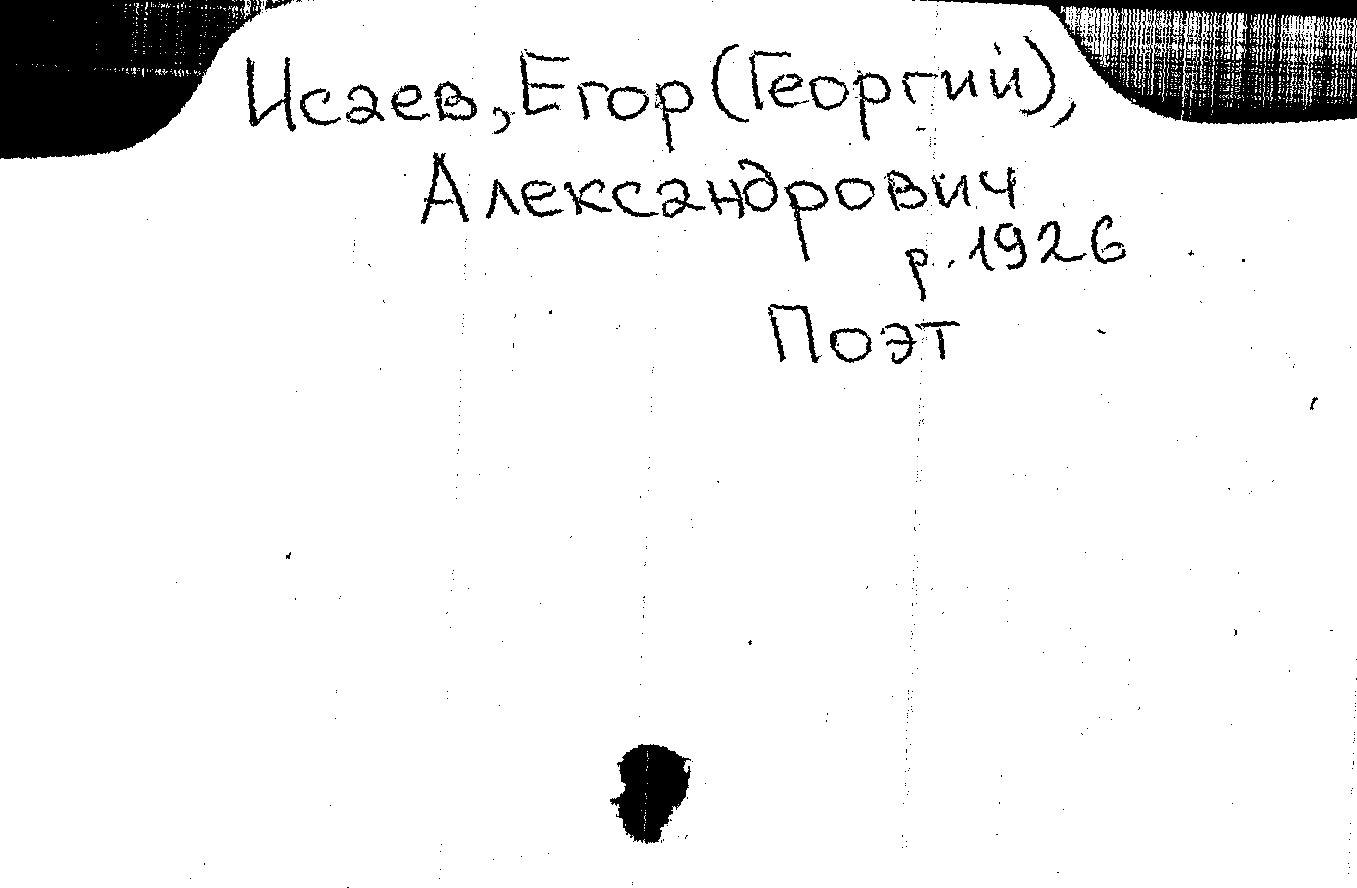 Исаев, Егор (Георгий),
Александрович
р. 1926
Поэт